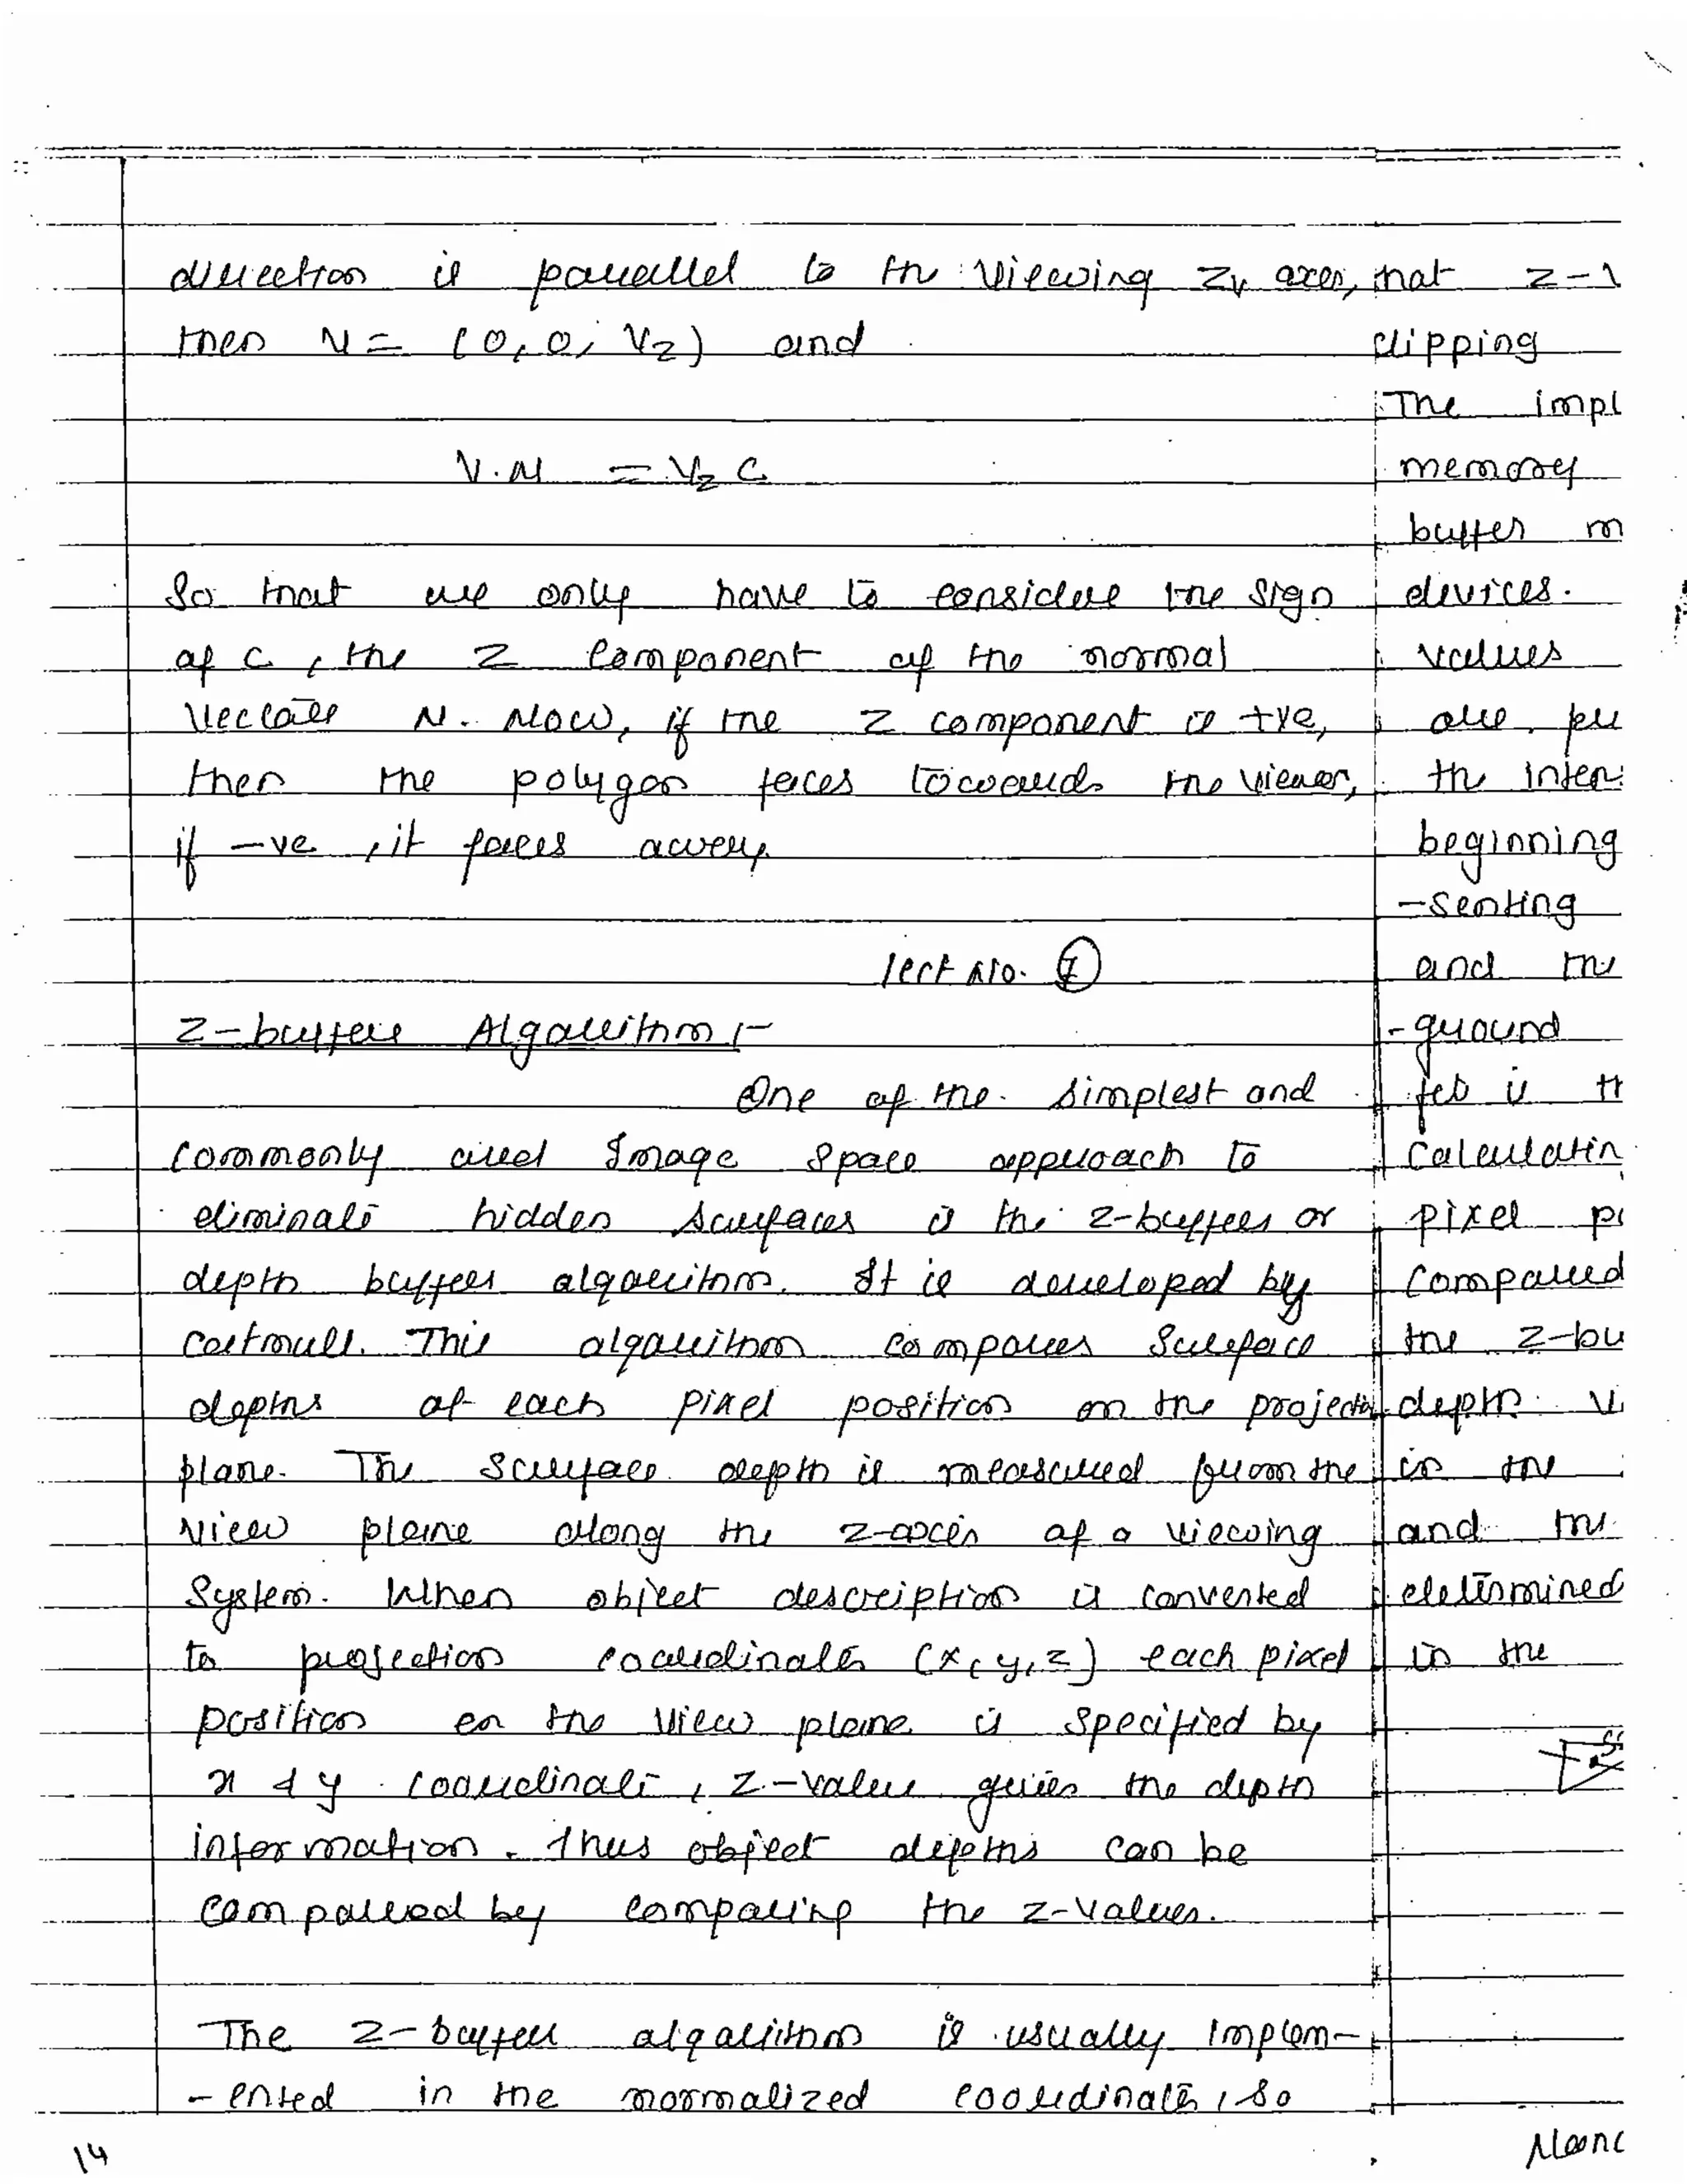 direction is parallel to the viewing Zv axes,
then V = (0, 0, Vz) and
V.N = Vz C
So that we only have to consider the sign
of C, the Z component of the normal
Vector N. Now, if the Z component is +ve,
then the polygon faces towards the viewer,
if -ve, it faces away.
Lect No. 7
Z-buffer Algorithm :-
One of the simplest and
commonly used Image Space approach to
eliminate hidden surfaces is the Z-buffer or
depth buffer algorithm. It is developed by
Catmull. This algorithm compares Surface
depths at each pixel position on the projection
plane. The surface depth is measured from the
view plane along the z-axis of a viewing
System. When object description is converted
to projection coordinates (x, y, z) each pixel
position on the view plane is specified by
x & y coordinate, z-value gives the depth
information. Thus object depths can be
compared by comparing the z-values.
The Z-buffer algorithm is usually implem-
-ented in the normalized coordinates, so
14
that z-
clipping
The impl
memory
buffer m
devices.
values
are pu
the inten
beginning
-senting
and the
-ground
feb is th
Calculatin
pixel p
Compared
the Z-bu
depth v
in the
and the
determined
in the